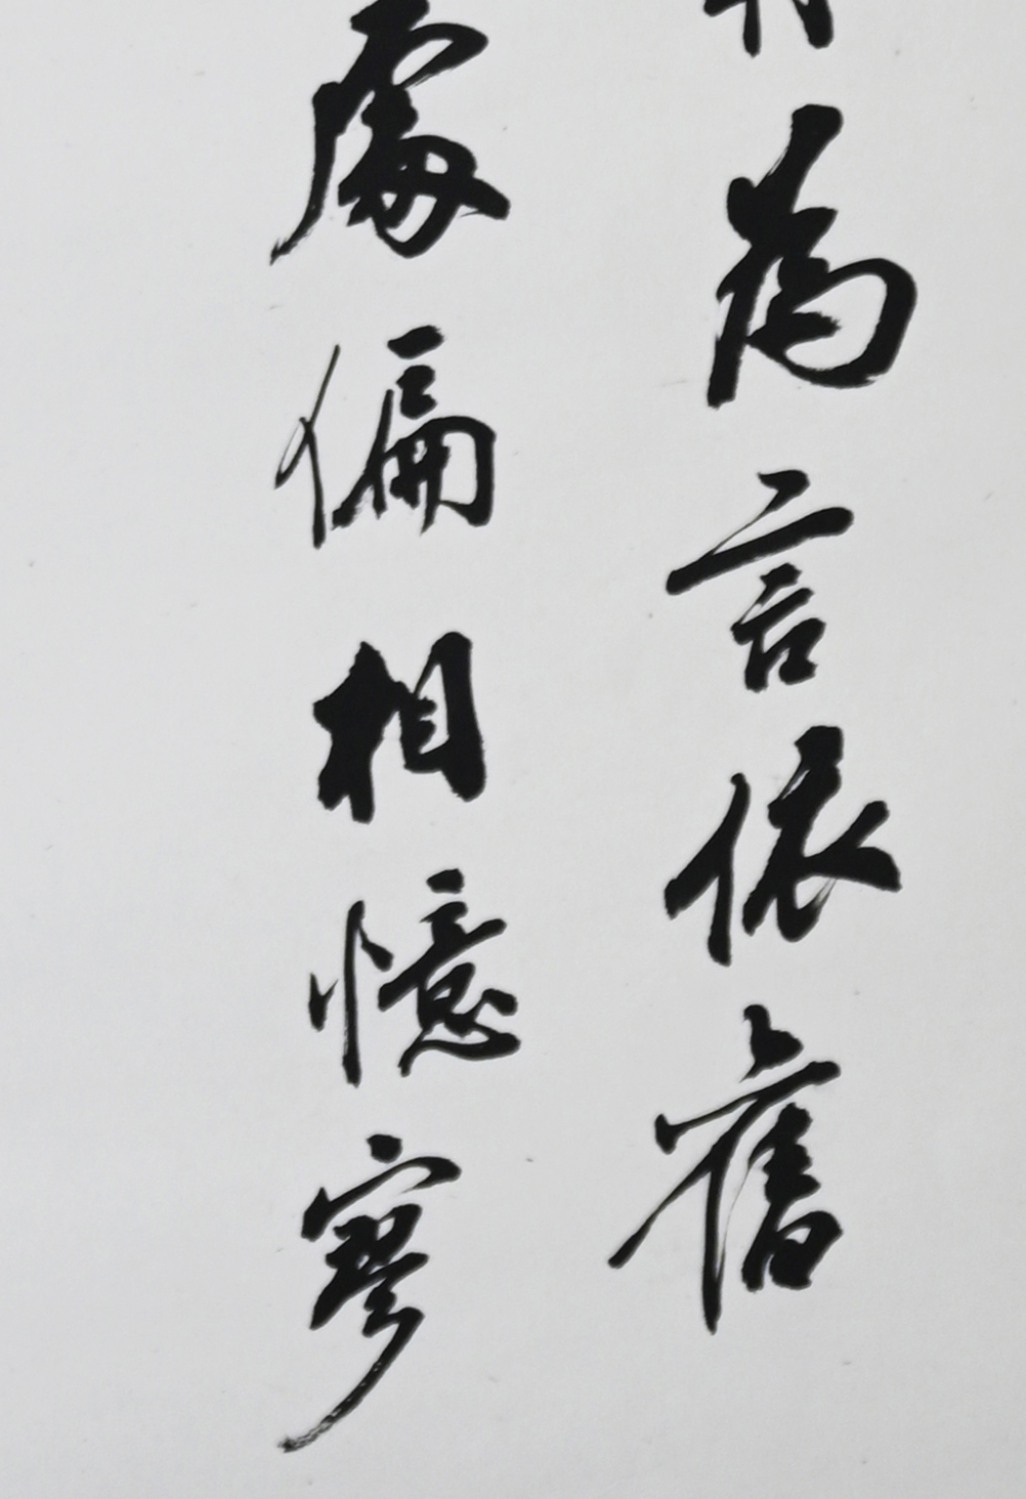 為言依舊
處偏相憶寥